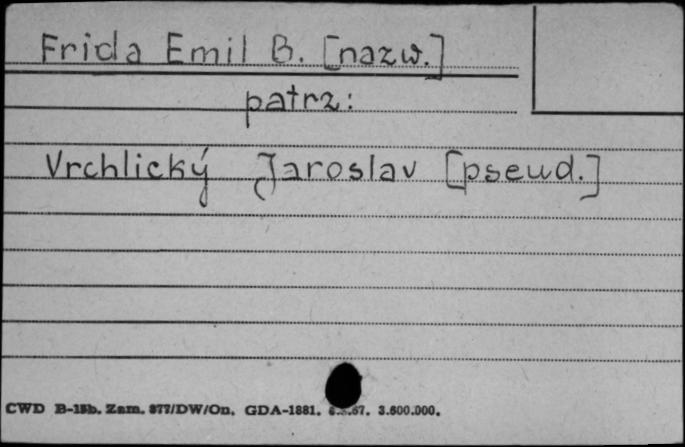 Frida Emil B. [nazw.]
patrz:
Vrchlický Jaroslav [pseud.]
CWD B-15b. Zam. 877/DW/On. GDA-1881. 3.600.000.